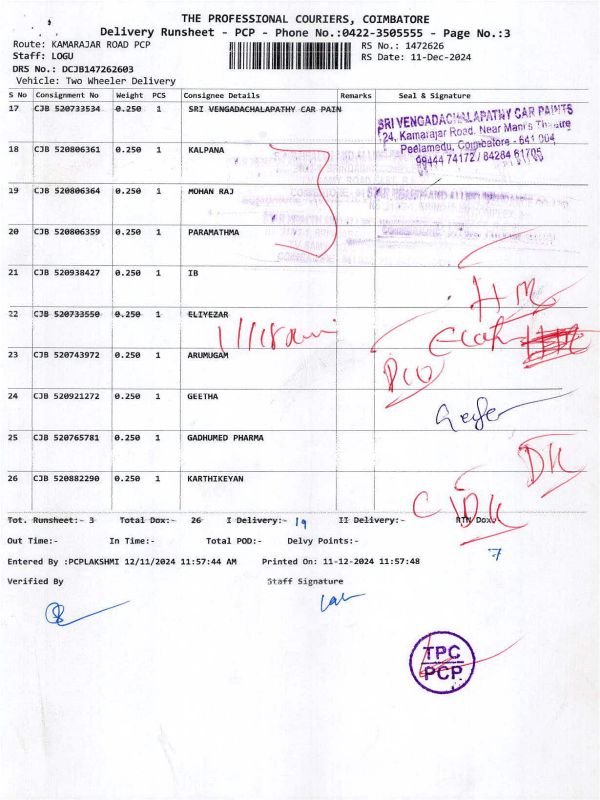 THE PROFESSIONAL COURIERS, COIMBATORE
Delivery Runsheet - PCP - Phone No.:0422-3505555 - Page No.:3
Route: KAMARAJAR ROAD PCP RS No.: 1472626
Staff: LOGU RS Date: 11-Dec-2024
DRS No.: DCJB147262603
Vehicle: Two Wheeler Delivery
S No Consignment No Weight PCS Consignee Details Remarks Seal & Signature
17 CJB 520733534 0.250 1 SRI VENGADACHALAPATHY CAR PAIN
SRI VENGADACHALAPATHY CAR PAINTS
24, Kamarajar Road, Near Mani's Theatre
Peelamedu, Coimbatore - 641 004
99444 74172 / 84284 61705
18 CJB 520806361 0.250 1 KALPANA
19 CJB 520806364 0.250 1 MOHAN RAJ
20 CJB 520806359 0.250 1 PARAMATHMA
21 CJB 520938427 0.250 1 IB
22 CJB 520733550 0.250 1 ELIYEZAR
23 CJB 520743972 0.250 1 ARUMUGAM
24 CJB 520921272 0.250 1 GEETHA
25 CJB 520765781 0.250 1 GADHUMED PHARMA
DK
26 CJB 520882290 0.250 1 KARTHIKEYAN
Tot. Runsheet:- 3 Total Dox:- 26 I Delivery:- 19 II Delivery:- RTN Dox:-
7
Out Time:- In Time:- Total POD:- Delvy Points:-
Entered By :PCPLAKSHMI 12/11/2024 11:57:44 AM Printed On: 11-12-2024 11:57:48
Verified By Staff Signature
TPC
PCP